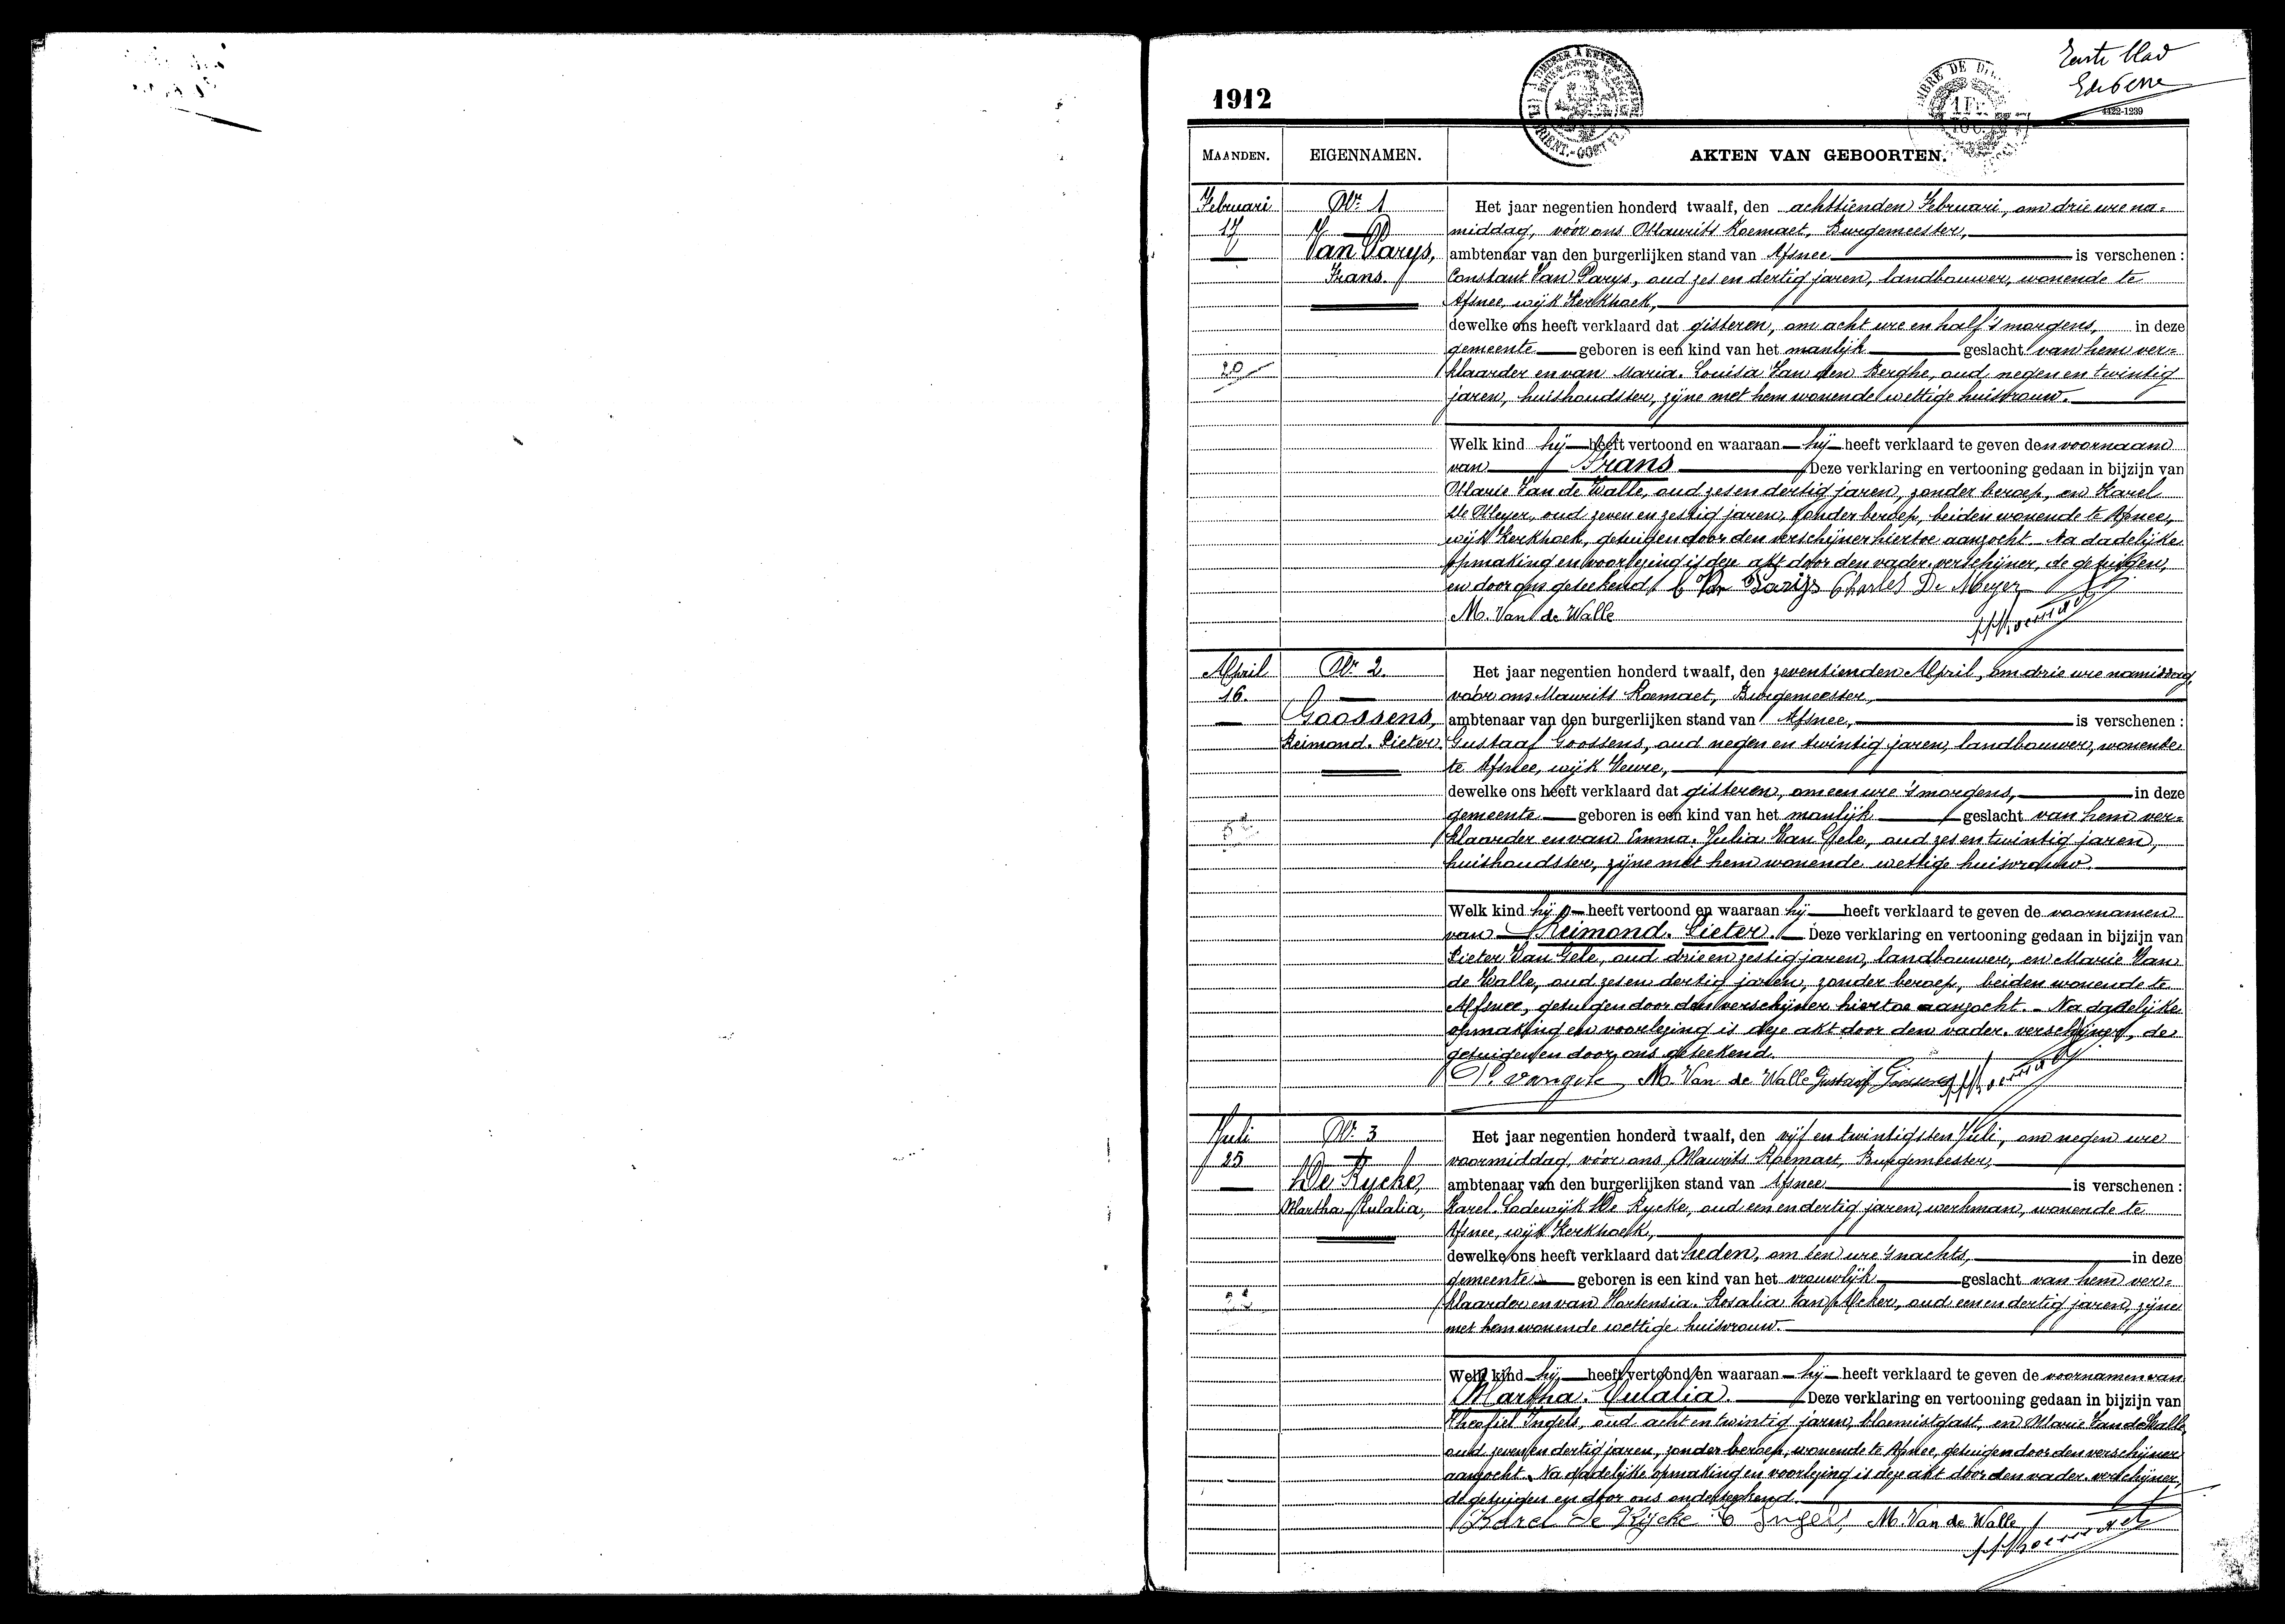 Eerste blad
1912
4422-1239
MAANDEN.
EIGENNAMEN.
AKTEN VAN GEBOORTEN.
Februari
17
Nr. 1
Van Parys,
Frans.
20
Het jaar negentien honderd twaalf, den achttienden Februari, om drie ure na=
middag, vóór ons Maurits Roemaet, Burgemeester,
ambtenaar van den burgerlijken stand van Afsnee is verschenen :
Constant Van Parys, oud zes en dertig jaren, landbouwer, wonende te
Afsnee, wijk Kerkhoek,
dewelke ons heeft verklaard dat gisteren, om acht ure en half 's morgens, in deze
gemeente geboren is een kind van het manlijk geslacht van hem ver=
klaarder en van Maria-Louisa Van den Berghe, oud negen en twintig
jaren, huishoudster, zijne met hem wonende wettige huisvrouw.
Welk kind hij heeft vertoond en waaraan hij heeft verklaard te geven den voornaam
van Frans Deze verklaring en vertooning gedaan in bijzijn van
Marie Van de Walle, oud zes en dertig jaren, zonder beroep, en Karel
De Meyer, oud zeven en zestig jaren, zonder beroep, beiden wonende te Afsnee,
wijk Kerkhoek, getuigen door den verschijner hiertoe aanzocht. Na dadelijke
opmaking en voorlezing is deze akt door den vader-verschijner, de getuigen,
en door ons geteekend. C Van Parijs Charles De Meyer
M. Van de Walle
April
16.
Nr. 2.
Goossens,
Reimond-Pieter.
Het jaar negentien honderd twaalf, den zeventienden April, om drie ure namiddag,
vóór ons Maurits Roemaet, Burgemeester,
ambtenaar van den burgerlijken stand van Afsnee, is verschenen :
Gustaaf Goossens, oud negen en twintig jaren, landbouwer, wonende
te Afsnee, wijk Veure,
dewelke ons heeft verklaard dat gisteren, om een ure 's morgens, in deze
gemeente geboren is een kind van het manlijk geslacht van hem ver=
klaarder en van Emma-Julia Van Gele, oud zes en twintig jaren,
huishoudster, zijne met hem wonende wettige huisvrouw.
Welk kind hij heeft vertoond en waaraan hij heeft verklaard te geven de voornamen
van Reimond-Pieter. Deze verklaring en vertooning gedaan in bijzijn van
Pieter Van Gele, oud drie en zestig jaren, landbouwer, en Marie Van
de Walle, oud zes en dertig jaren, zonder beroep, beiden wonende te
Afsnee, getuigen door den verschijner hiertoe aanzocht. - Na dadelijke
opmaking en voorlezing is deze akt door den vader-verschijner, de
getuigen en door ons geteekend.
P. Vangele M. Van de Walle Gustaaf Goossens
Juli
25
Nr. 3
De Rycke,
Martha-Eulalia,
Het jaar negentien honderd twaalf, den vijf en twintigsten Juli, om negen ure
voormiddag, vóór ons Maurits Roemaet, Burgemeester,
ambtenaar van den burgerlijken stand van Afsnee is verschenen :
Karel-Lodewijk De Rycke, oud een en dertig jaren, werkman, wonende te
Afsnee, wijk Kerkhoek,
dewelke ons heeft verklaard dat heden, om één ure 's nachts, in deze
gemeente geboren is een kind van het vrouwlijk geslacht van hem ver=
klaarder en van Hortensia-Rosalia Van Acker, oud een en dertig jaren, zijne
met hem wonende wettige huisvrouw.
Welk kind hij heeft vertoond en waaraan hij heeft verklaard te geven de voornamen van
Martha-Eulalia. Deze verklaring en vertooning gedaan in bijzijn van
Theofiel Ingels, oud acht en twintig jaren, bloemistgast, en Marie Van de Walle,
oud zeven en dertig jaren, zonder beroep, wonende te Afsnee, getuigen door den verschijner
aanzocht. Na dadelijke opmaking en voorlezing is deze akt door den vader-verschijner,
de getuigen en door ons onderteekend.
Karel De Rijcke T Ingels, M. Van de Walle